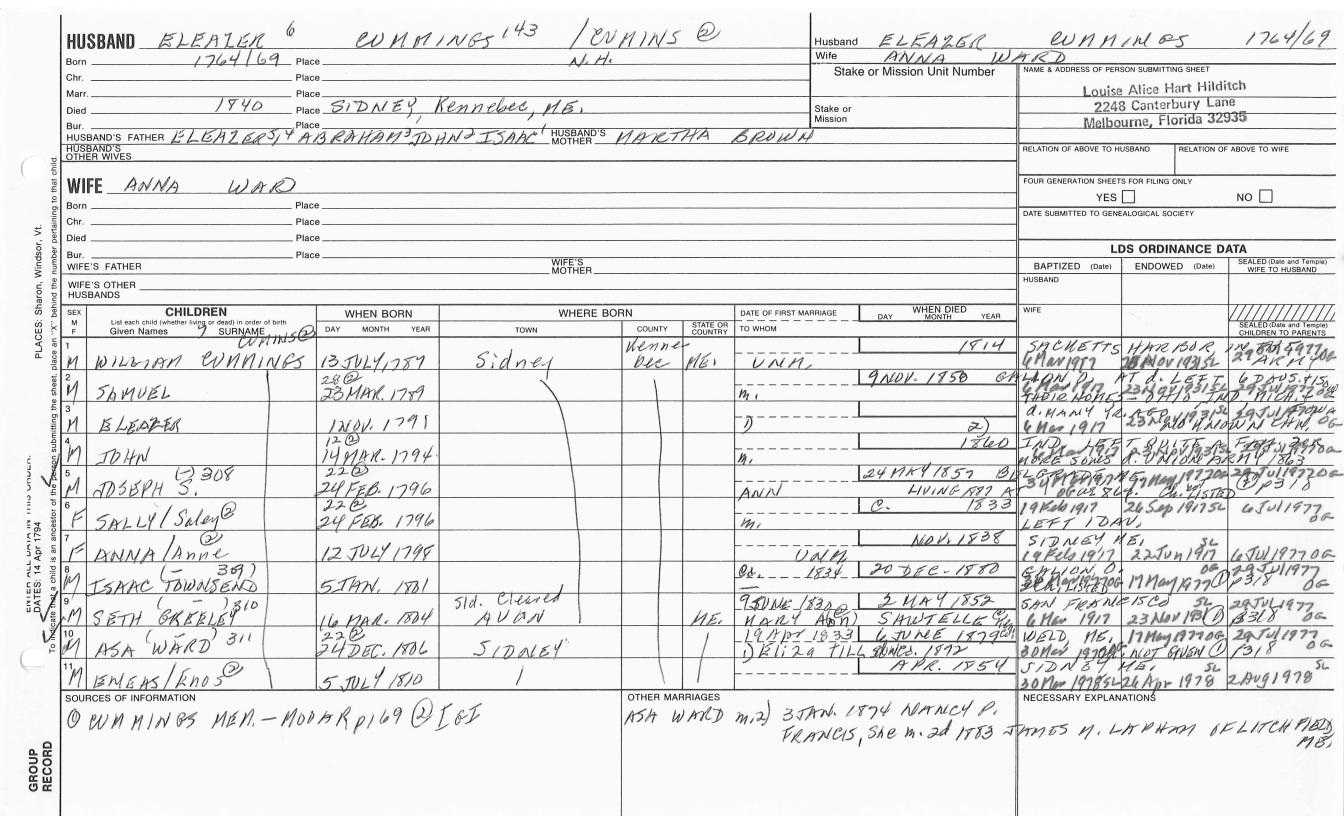 HUSBAND ELEAZER 6 CUMMINGS 143 / CUMINS ②
Born 1764/69 Place N.H.
Chr. Place
Marr. Place
Died 1840 Place SIDNEY, Kennebec, ME.
Bur. Place
HUSBAND'S FATHER ELEAZER5,4 ABRAHAM3 JOHN2 ISAAC1 HUSBAND'S MOTHER MARTHA BROWN
HUSBAND'S OTHER WIVES
WIFE ANNA WARD
Born Place
Chr. Place
Died Place
Bur. Place
WIFE'S FATHER WIFE'S MOTHER
WIFE'S OTHER HUSBANDS
Husband ELEAZER CUMMINGS 1764/69
Wife ANNA WARD
Stake or Mission Unit Number
Stake or Mission
NAME & ADDRESS OF PERSON SUBMITTING SHEET
Louise Alice Hart Hilditch
2248 Canterbury Lane
Melbourne, Florida 32935
RELATION OF ABOVE TO HUSBAND RELATION OF ABOVE TO WIFE
FOUR GENERATION SHEETS FOR FILING ONLY
YES NO
DATE SUBMITTED TO GENEALOGICAL SOCIETY
LDS ORDINANCE DATA
BAPTIZED (Date) ENDOWED (Date) SEALED (Date and Temple) WIFE TO HUSBAND
HUSBAND
WIFE
SEALED (Date and Temple) CHILDREN TO PARENTS
SEX M F
CHILDREN
List each child (whether living or dead) in order of birth
Given Names 7 SURNAME CUMINS②
WHEN BORN DAY MONTH YEAR
WHERE BORN TOWN COUNTY STATE OR COUNTRY
DATE OF FIRST MARRIAGE TO WHOM
WHEN DIED DAY MONTH YEAR
1 M WILLIAM CUMMINGS 13 JULY, 1787 Sidney Kennebec ME. UNM. 1814 SACKETTS HARBOR IN ARMY
2 M SAMUEL 28② 23 MAR. 1789 m. 9 NOV. 1850 GALION, O. AT d. LEFT 6 DAUS.
THEIR HOMES - OHIO, IND, MICH.
3 M ELEAZER 1 NOV. 1791 D) 2) d. MANY YR. AGO
6 Mar 1917 23 Nov 1931 SL 29 Jul 1977 OG NO KNOWN CHN.
4 M JOHN 12② 14 MAR. 1794 m. 1860 IND. LEFT QUITE A
MORE SONS d. UNION ARMY 1863
5 M JOSEPH S. (-) 308 22② 24 FEB. 1796 ANN LIVING 1887 AT 24 MAY 1857
① P318
6 F SALLY / Saley② 22② 24 FEB. 1796 m. C. 1833 19 Feb 1917 26 Sep 1917 SL 6 Jul 1977 OG
LEFT 1 DAU.
7 F ANNA / Anne② 12 JULY 1798 UNM NOV. 1838 SIDNEY ME. SL
19 Feb 1917 22 Jun 1917 6 Jul 1977 OG
8 M ISAAC (TOWNSEND - 309) 5 JAN. 1801 Ca. 1834 20 DEC. 1880 GALION, O. OG 29 Jul 1977
17 May 1977 ① P318 OG
9 M SETH GREELEY (-) 310 16 MAR. 1804 Sid. Closed AVON ME. 9 JUNE 1830② MARY Ann SAWTELLE 2 MAY 1852 SAN FRANCISCO SL 29 Jul 1977
6 Mar 1917 23 Nov 1931 ① P318 OG
10 M ASA (WARD) 311 22② 24 DEC. 1806 SIDNEY 19 APR 1833 1) ELIZA TILL 6 JUNE 1879 WELD, ME. 17 May 1977 OG 29 Jul 1977
NOT GIVEN ① P318 OG
11 M ENEAS / Enos② 5 JULY 1810 APR. 1854 SIDNEY ME. SL SL
30 Mar 1978 SL 26 Apr 1978 2 Aug 1978
SOURCES OF INFORMATION
① CUMMINGS MEM. - MOOAR p169 ② IGI
OTHER MARRIAGES
ASA WARD m. 2) 3 JAN. 1874 NANCY P.
FRANCIS, She m. 2d 1883 JAMES M. LAPHAM OF LITCHFIELD, ME.
NECESSARY EXPLANATIONS
PLACES: Sharon, Windsor, Vt.
DATES: 14 Apr 1794
ENTER ALL DATA IN THIS ORDER:
To indicate that a child is an ancestor of the person submitting the sheet, place an "X" behind the number pertaining to that child.
GROUP RECORD